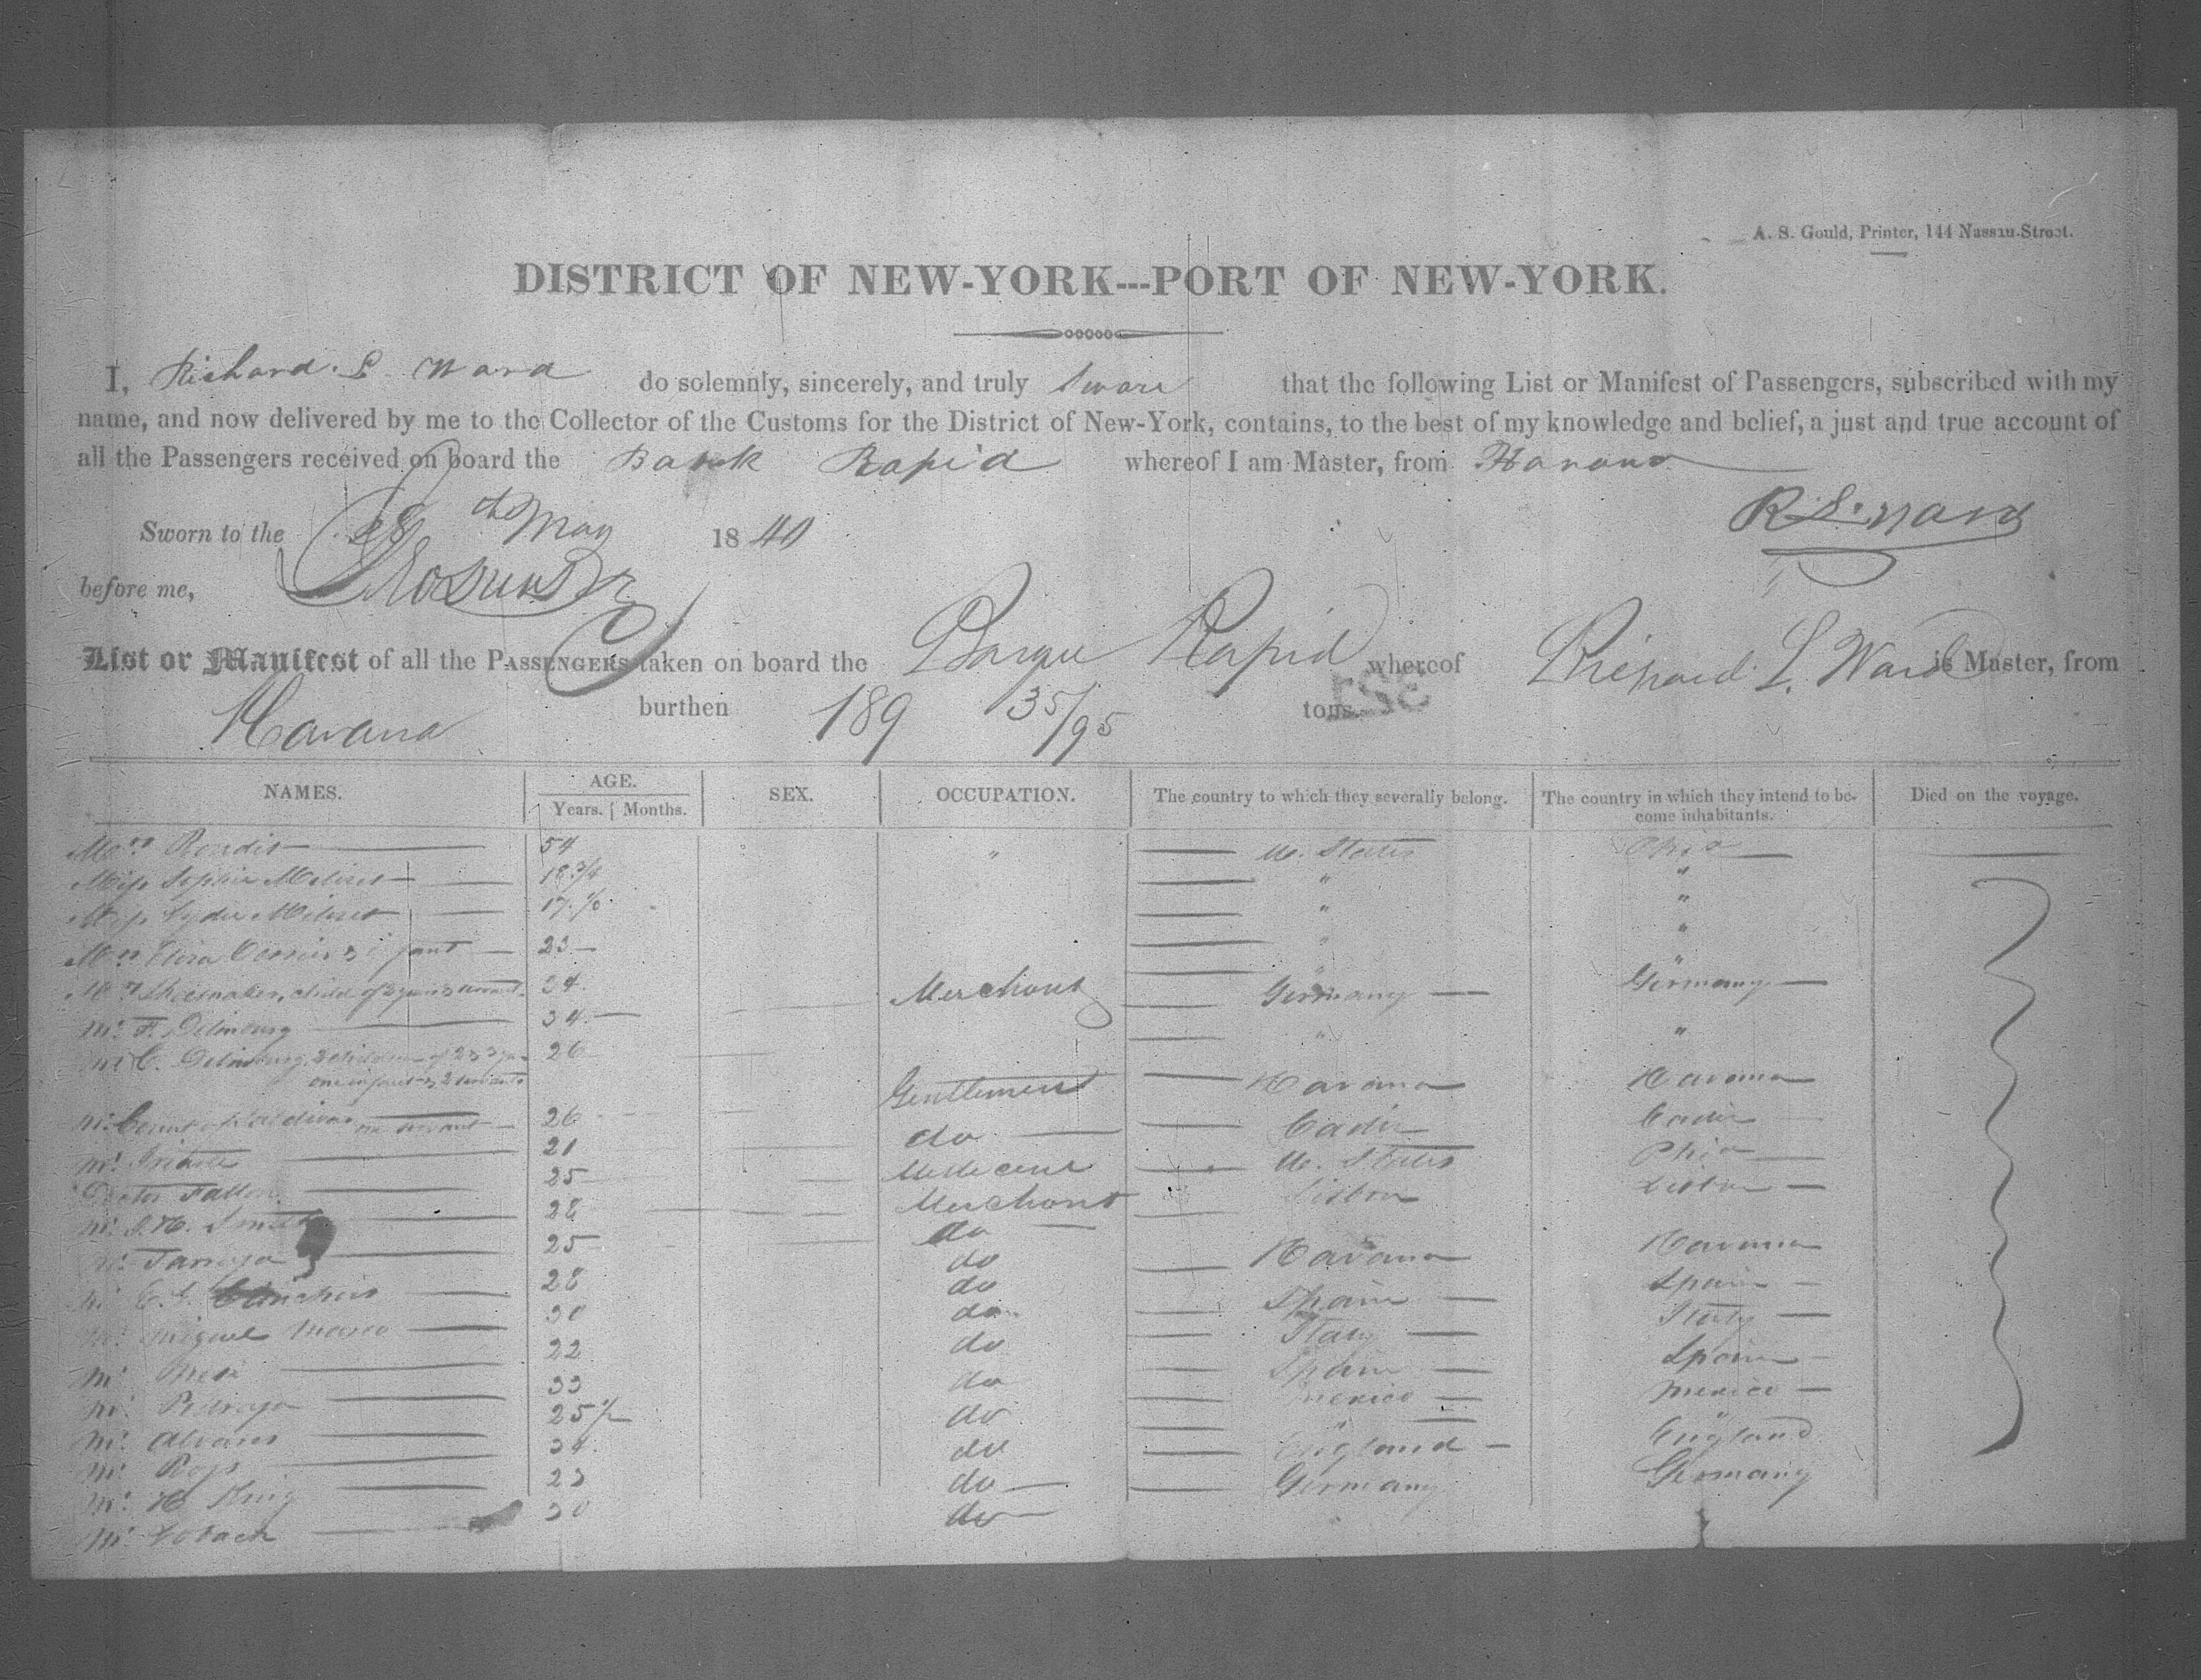 A. S. Gould, Printer, 144 Nassau-Street.
DISTRICT OF NEW-YORK---PORT OF NEW-YORK.
I, Richard S Ward do solemnly, sincerely, and truly Swear that the following List or Manifest of Passengers, subscribed with my
name, and now delivered by me to the Collector of the Customs for the District of New-York, contains, to the best of my knowledge and belief, a just and true account of
all the Passengers received on board the Bark Rapid whereof I am Master, from Havana
R S Ward
Sworn to the 28 th May 1840
before me,
List or Manifest of all the PASSENGERS taken on board the Barque Rapid whereof Richard S. Ward is Master, from
Havana burthen 189 35/95 tons.
327
NAMES. AGE. SEX. OCCUPATION. The country to which they severally belong. The country in which they intend to be- Died on the voyage.
Years. Months. come inhabitants.
Mrs 54 " U. States
Miss Sophia 18 3/4 " "
Miss Lydia 17 " "
Mrs 23 " "
Mrs Shoemaker, child of 2 years servant 24 Merchant Germany Germany
Mr F. 34 " "
Mr C. 2 children of 2 & 3 26
one infant & 2 servants Gentlement Havana Havana
Mr Count one servant 26 do Cadiz Cadiz
Mr 21 Medecine U. States
Doctor Fallon 25 Merchant Lisbon Lisbon
Mr J. H. Smith 28 do
Mr 25 do Havana Havana
Mr C. J. 28 do Spain Spain
Mr Miguel 30 do Italy Italy
Mr 22 do Spain Spain
Mr Pedraja 33 do Mexico Mexico
Mr 25 1/2 do " "
Mr Ross 34 do England England
Mr H King 23 do Germany Germany
Mr 30 do